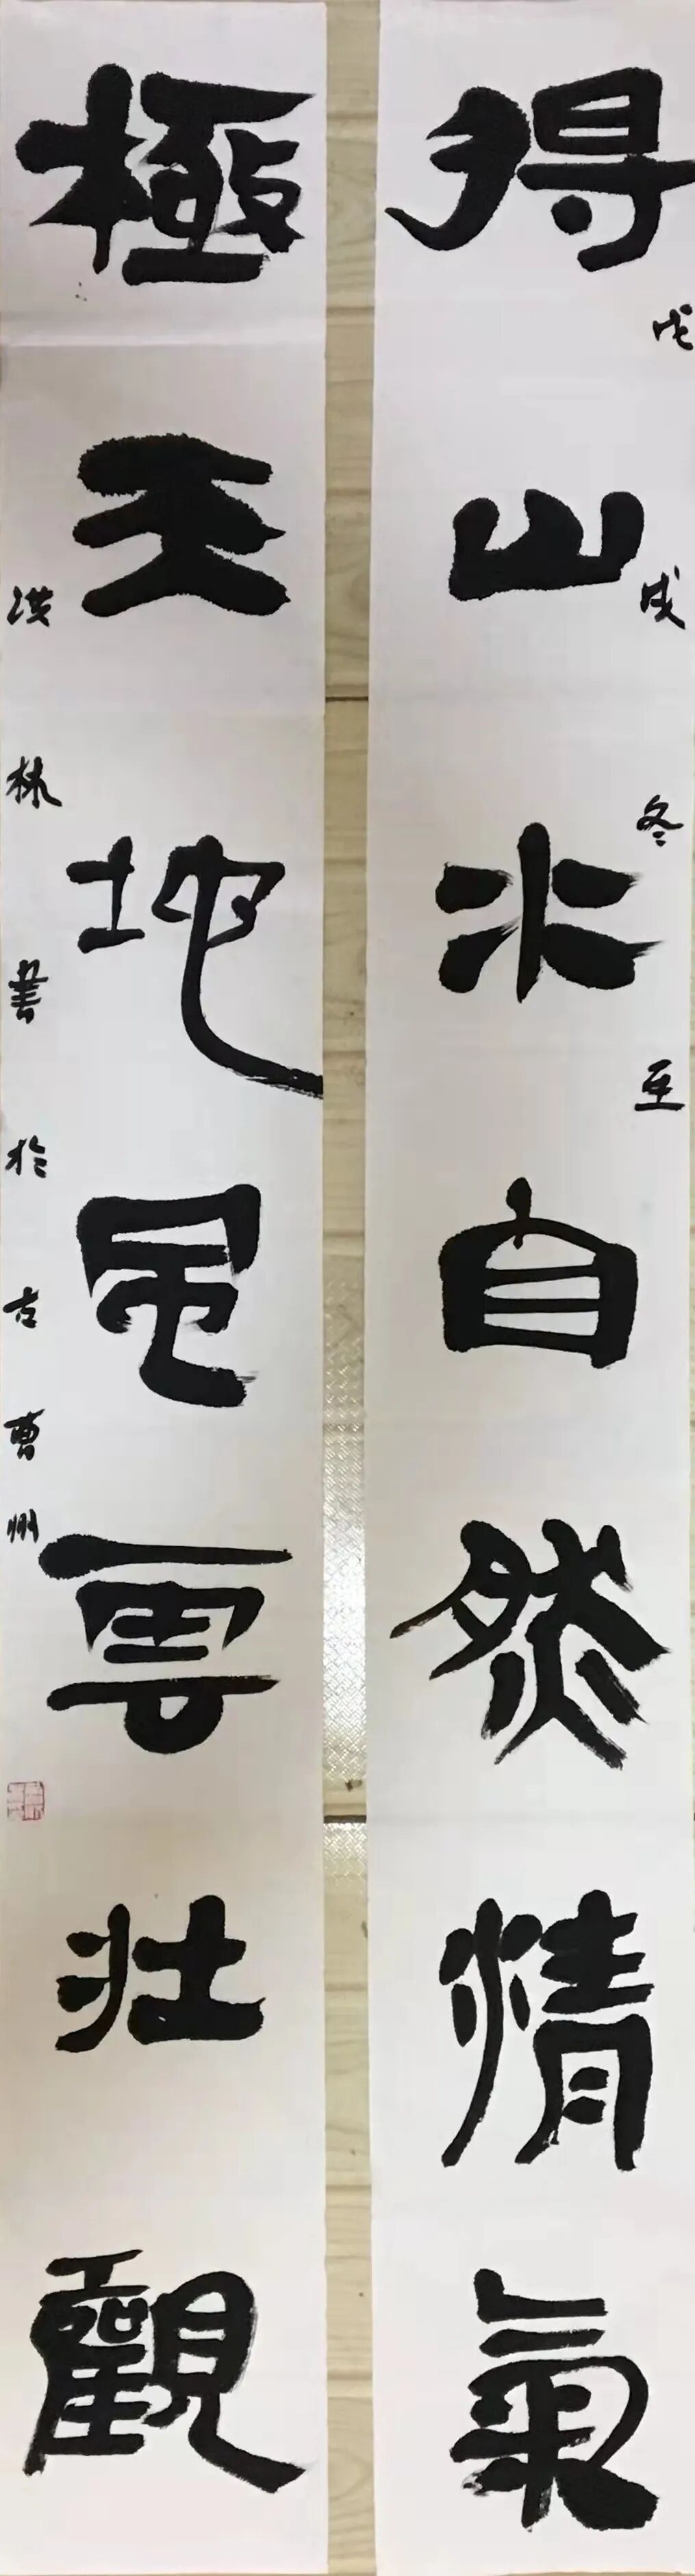 得山水自然精氣
戊戌冬至
極天地風雲壯觀
洪林書於古曹州